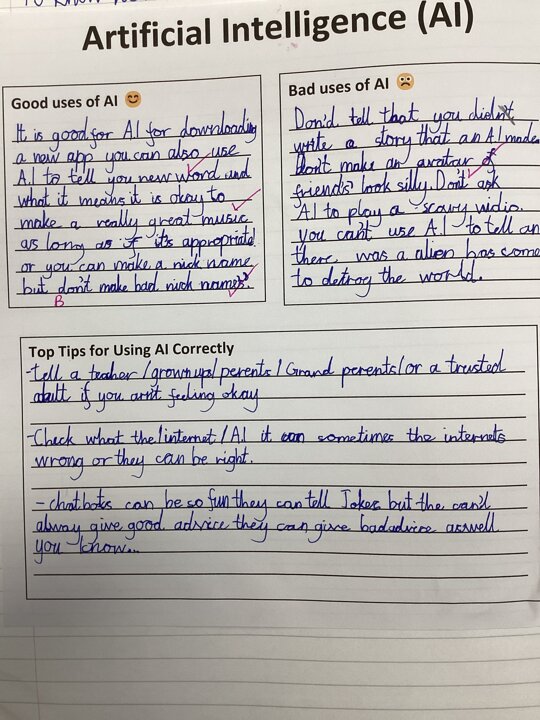 Artificial Intelligence (AI)
Good uses of AI
It is good for A.I for downloading
a new app you can also use
A.I to tell you new word and
what it means it is okay to
make a really great music
as long as if it's appropriate
or you can make a nick name
but don't make bad nick names.
B
Bad uses of AI
Don'd tell that you didn't
write a story that an A.I made
don't make an avatar of
friends look silly. Don't ask
A.I to play a scary vidio.
you can't use A.I to tell an
there was a alien has come
to detroy the world.
Top Tips for Using AI Correctly
-tell a teacher/grownups/perents/Grand perents/or a trusted
adult if you arn't feeling okay
-Check what the/internet/A.I it can sometimes the internets
wrong or they can be right.
-chatbots can be so fun they can tell Jokes but the can't
alway give good advice they can give bad advice aswell
you know...